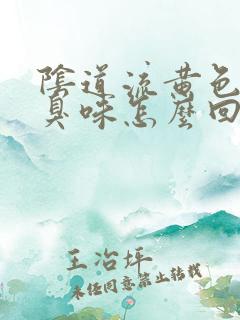 陰道流黄色
臭味怎麽回
王冶坪
未经同意禁止转载